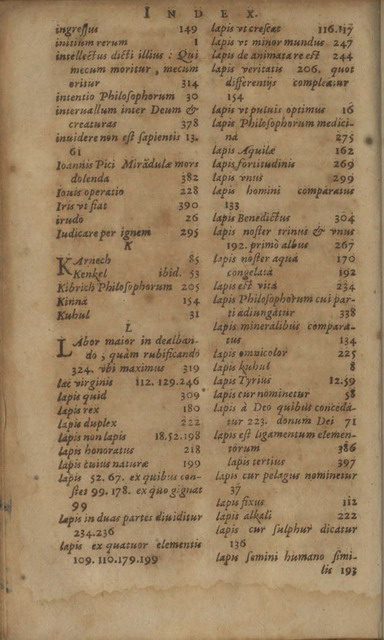 INDEX.
ingressus 149
initium rerum 1
intellectus dicti illius : Qui
mecum moritur, mecum
oritur 314
intentio Philosophorum 30
interuallum inter Deum &
creaturas 378
inuidere non est sapientis 13.
61
Ioannis Pici Mirādulæ mors
dolenda 382
Iouis operatio 228
Iris vt fiat 390
irudo 26
Iudicare per ignem 295
K
KArnech 85
Kenkel ibid. 53
Kibrich Philosophorum 205
Kinna 154
Kuhul 31
L
LAbor maior in dealban-
do, quàm rubificando
324. vbi maximus 319
lac virginis 112.129.246
lapis quid 309
lapis rex 180
lapis duplex 222
lapis non lapis 18.52.198
lapis honoratus 218
lapis cuius naturæ 199
lapis 52. 67. ex quibus con-
stet 99. 178. ex quo gignat
99
lapis in duas partes diuiditur
234.236
lapis ex quatuor elementis
109.110.179.199
lapis vt crescat 116.117
lapis vt minor mundus 247
lapis de animata re est 244
lapis veritatis 206. quot
differentijs compleatur
154
lapis vt putuis optimus 16
lapis Philosophorum medici-
na 275
lapis Aquilæ 162
lapis fortitudinis 269
lapis vnus 299
lapis homini comparatus
133
lapis Benedictus 304
lapis noster trinus & vnus
192. primò albus 267
lapis noster aqua 170
congelata 192
lapis est vita 234
lapis Philosophorum cui par-
ti adiungatur 338
lapis mineralibus compara-
tus 134
lapis omnicolor 225
lapis kuhul 8
lapis Tyrius 12.59
lapis cur nominetur 58
lapis à Deo quibus conceda-
tur 223. donum Dei 71
lapis est ligamentum elemen-
torum 386
lapis tertius 397
lapis cur pelagus nominetur
37
lapis fixus 112
lapis alkali 222
lapis cur sulphur dicatur
136
lapis semini humano simi-
lis 193